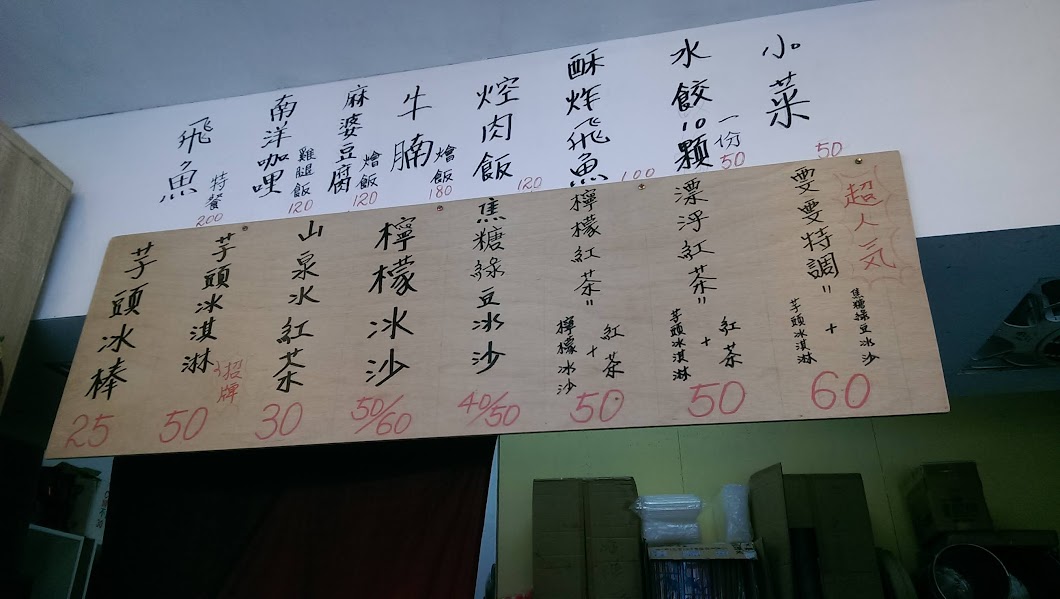 小菜 50
水餃10顆 一份 50
酥炸飛魚 100
焢肉飯 120
牛腩 燴飯 180
麻婆豆腐 燴飯 120
南洋咖哩 雞腿飯 120
飛魚 特餐 200
超人氣
雯雯特調=
焦糖綠豆冰沙
+
芋頭冰淇淋
60
漂浮紅茶=
紅茶
+
芋頭冰淇淋
50
檸檬紅茶=
紅茶
+
檸檬冰沙
50
焦糖綠豆冰沙
40/50
檸檬冰沙
50/60
山泉水紅茶
30
芋頭冰淇淋
招牌
50
芋頭冰棒
25